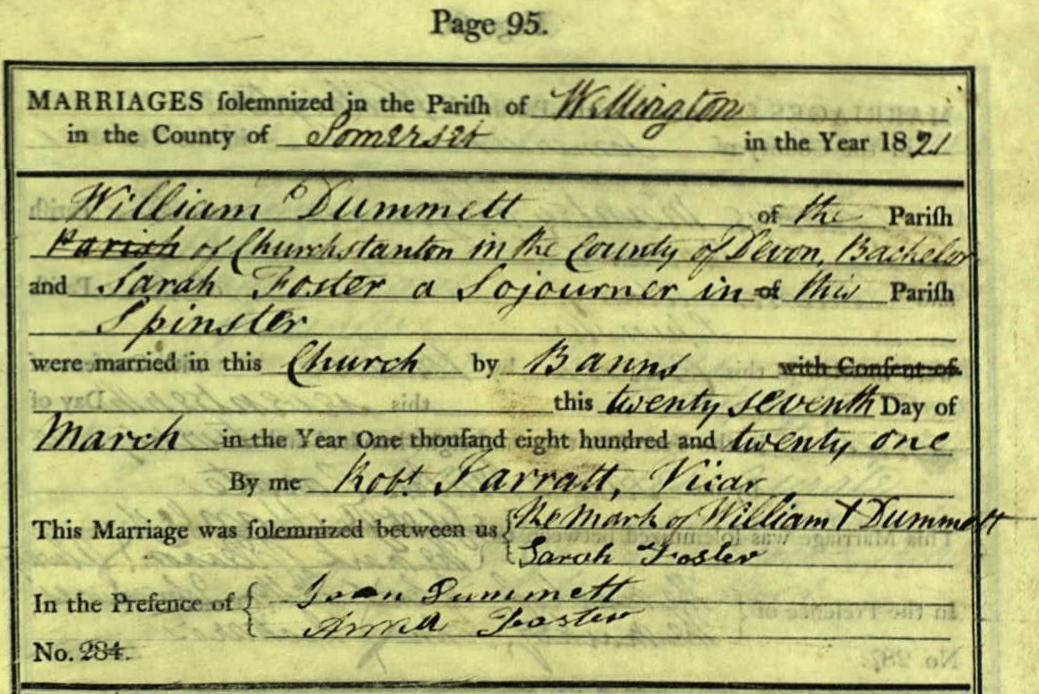 Page 95.
MARRIAGES solemnized in the Parish of Wellington
in the County of Somerset in the Year 1821
William Dummett of the Parish
Parish of Churchstanton in the County of Devon, Bachelor
and Sarah Foster a Sojourner in of this Parish
Spinster
were married in this Church by Banns with Consent of
this twenty seventh Day of
March in the Year One thousand eight hundred and twenty one
By me Robt Jarratt, Vicar
This Marriage was solemnized between us The Mark of William X Dummett
Sarah Foster
In the Presence of Joan Dummett
Anna Foster
No. 284.